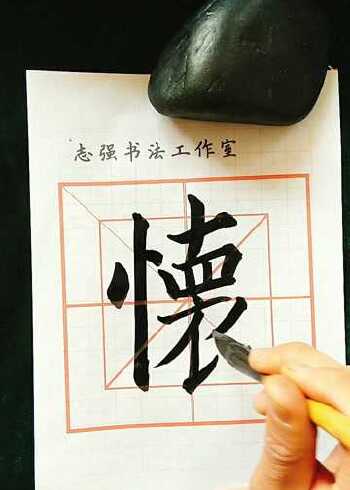 志强书法工作室
懐